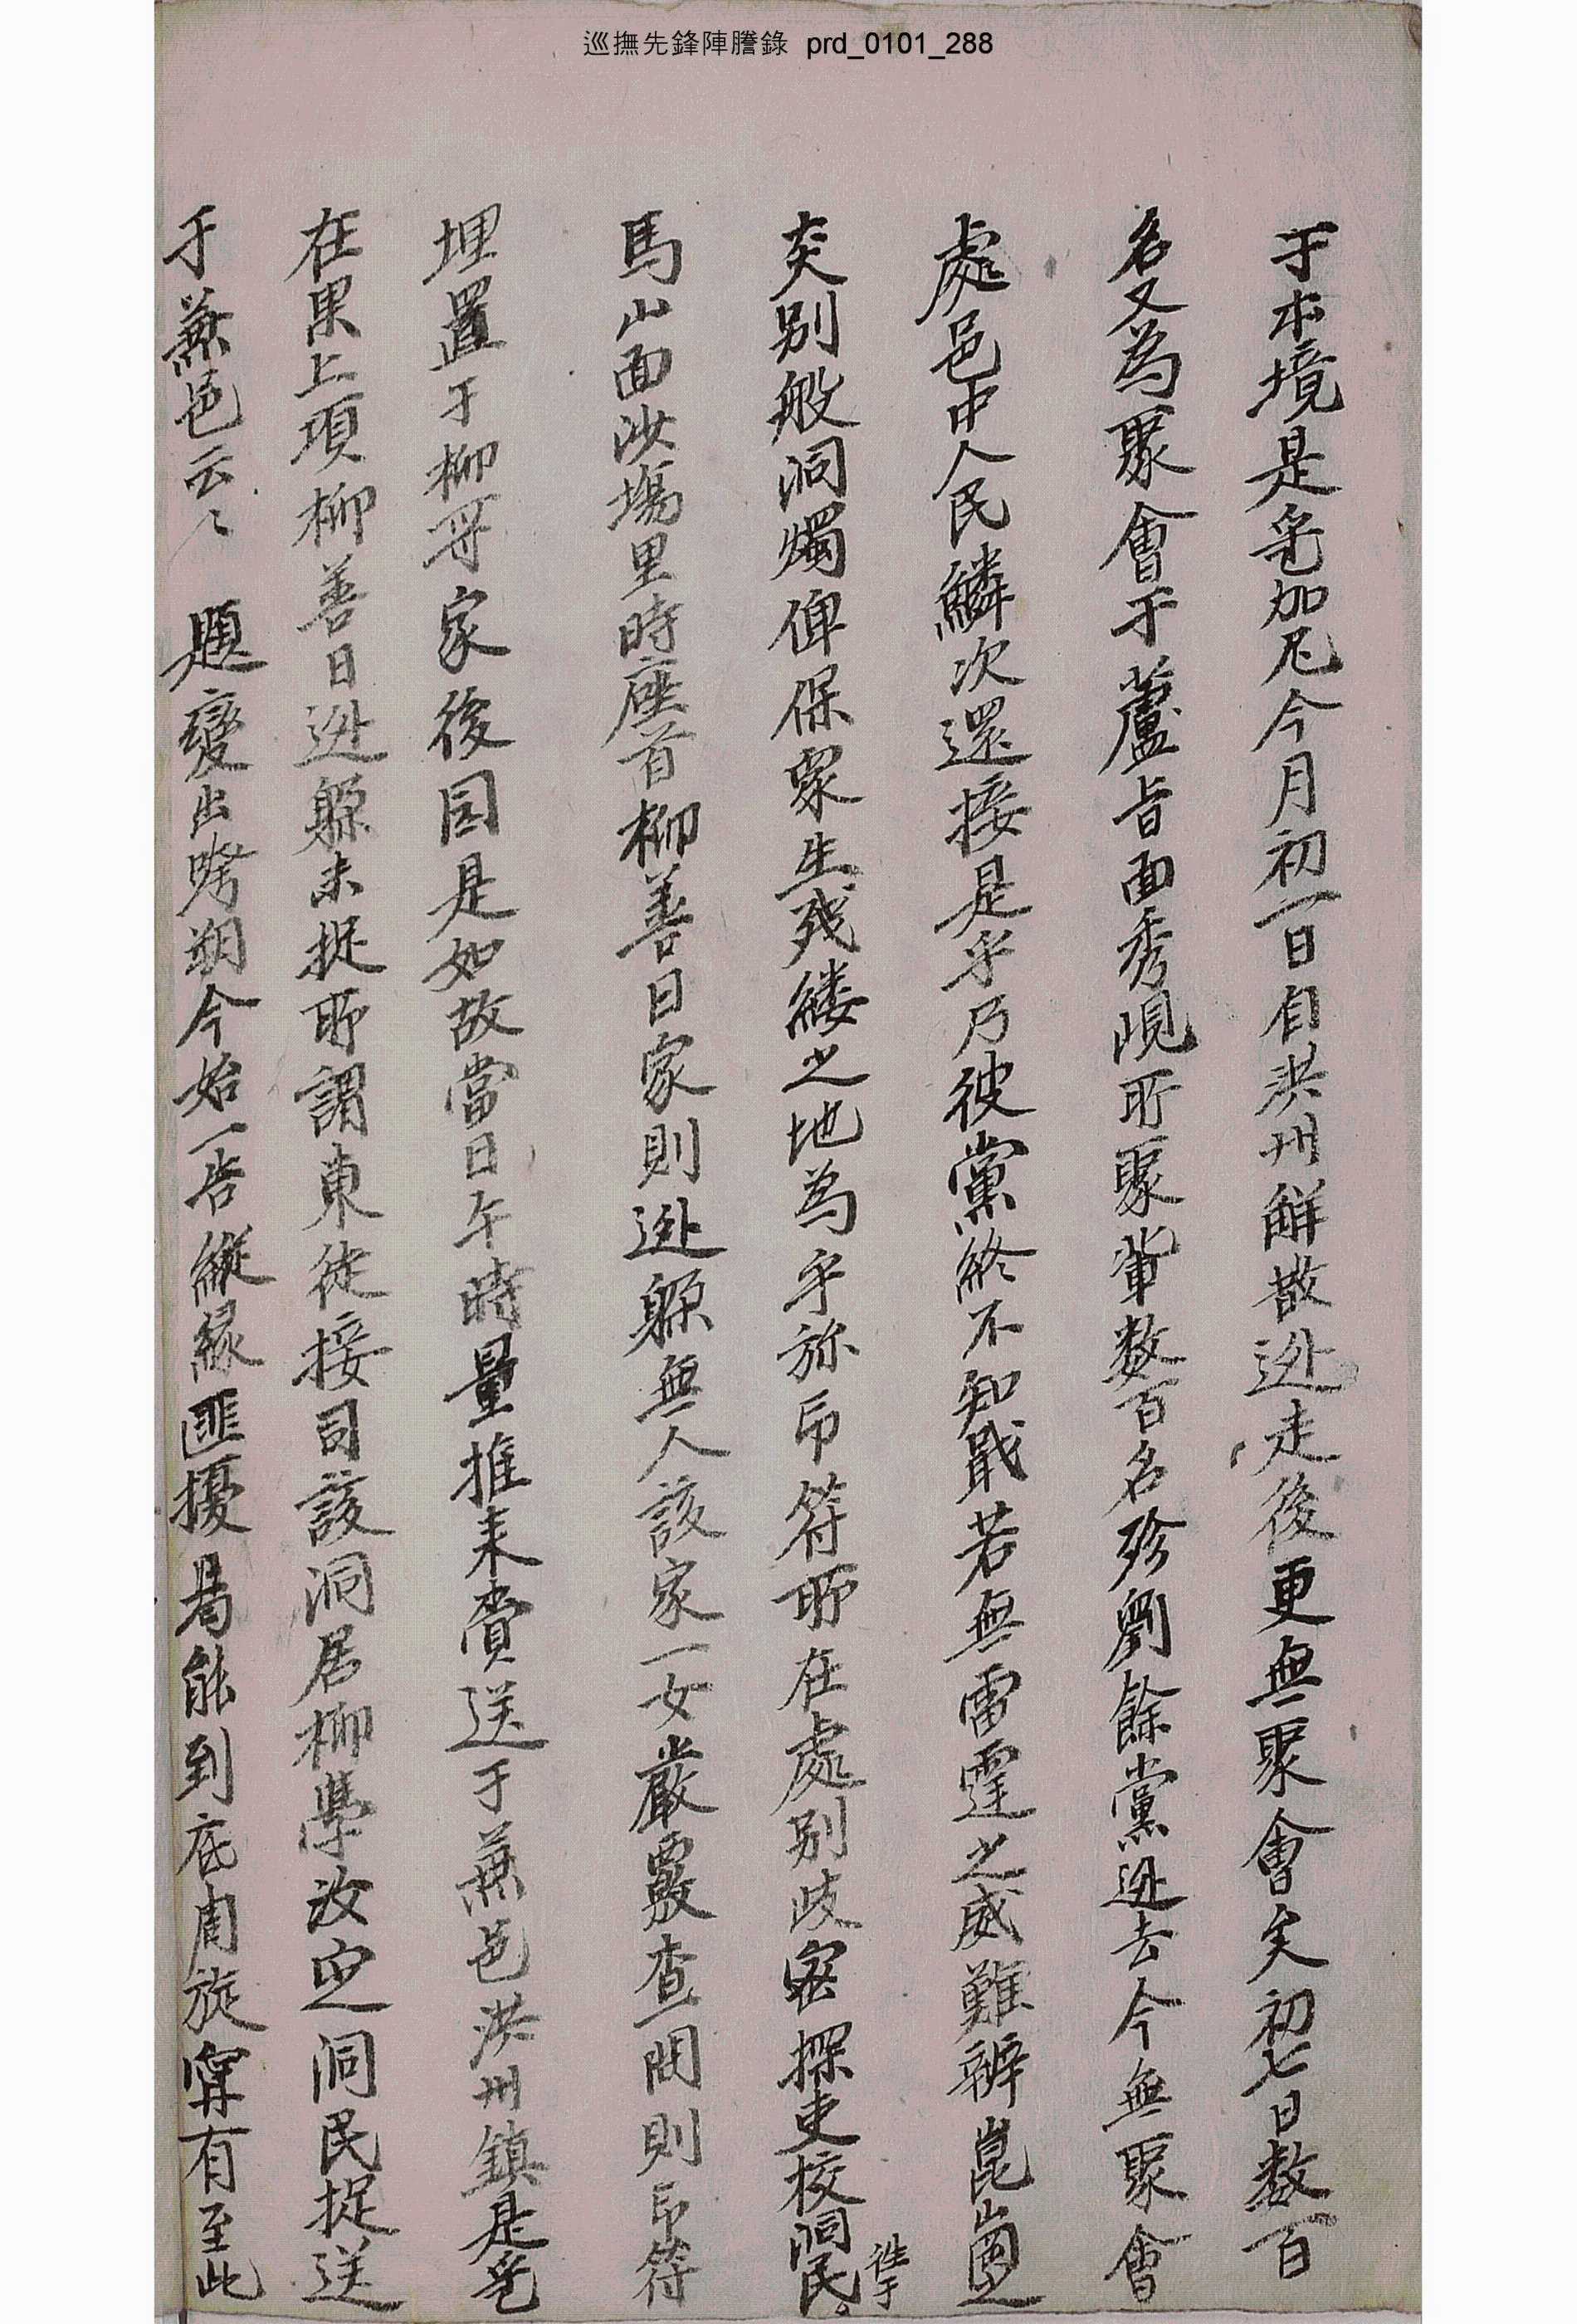 巡撫先鋒陣謄錄 prd_0101_288
于本境是乎加尼今月初一日自洪州解散逃走後更無聚會矣初七日數百
名又爲聚會于蘆旨面秀峴所聚輩數百名殄劉餘黨逃去今無聚會
處邑中人民鱗次還接是乎乃彼黨終不知戢若無雷霆之威難辨崑崗之
炎別般洞燭俾保衆生殘縷之地爲乎旀印符所在處別岐密探吏校洞民
徃于
馬山面沙塲里時座首柳善日家則逃躱無人該家一女嚴覈查問則印符
埋置于柳哥家後园是如故當日午時量推来賫送于兼邑洪州鎮是乎
在果上項柳善日逃躱未捉所謂東徒接司該洞居柳學汝定洞民捉送
于兼邑云〻 題變出哤朔今始一告縱緣匪擾曷能到底周旋寗有至此